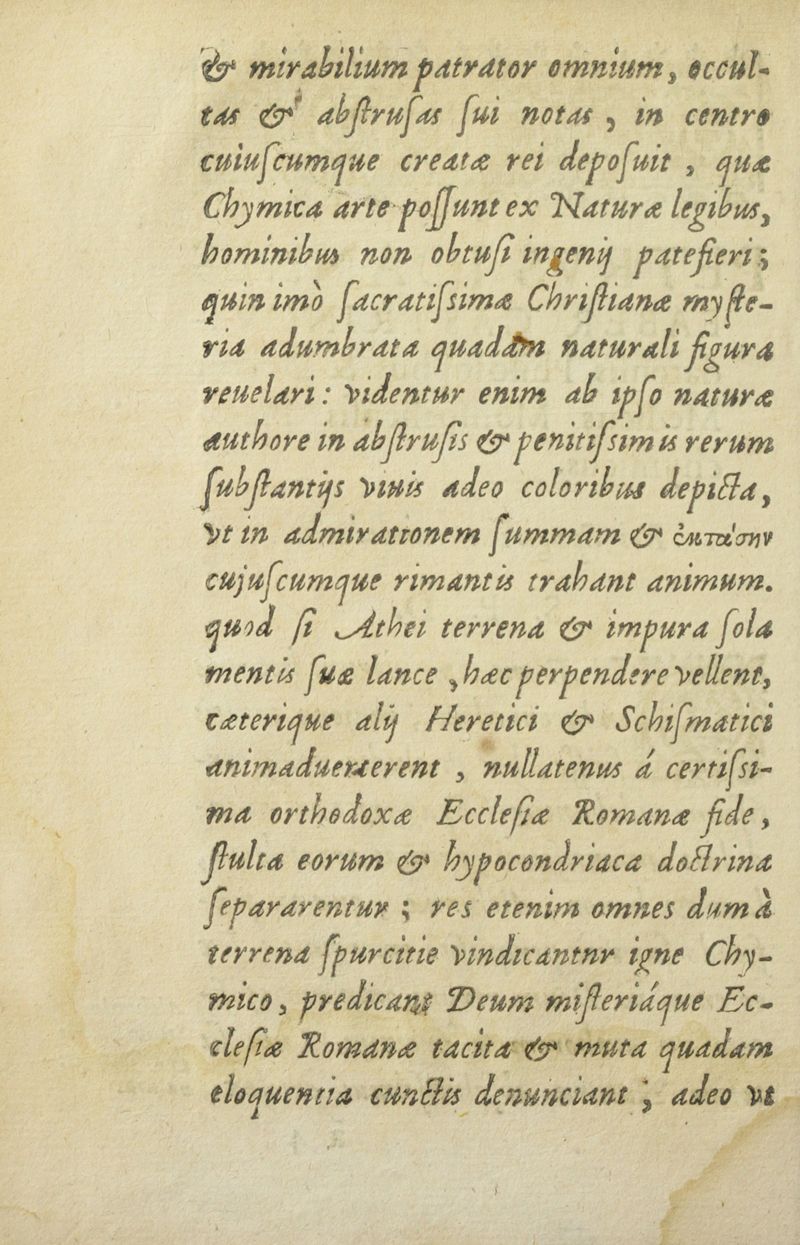 & mirabilium patrator omnium, occul-
tas & abſtruſas ſui notas, in centro
cuiuſcumque creatæ rei depoſuit, quæ
Chymica arte poſſunt ex Naturæ legibus,
hominibus non obtuſi ingenij patefieri;
quin imò ſacratiſsimæ Chriſtianæ myſte-
ria adumbrata quadam naturali figura
reuelari: videntur enim ab ipſo naturæ
authore in abſtruſis & penitiſsimis rerum
ſubſtantijs viuis adeo coloribus depicta,
vt in admirationem ſummam &
cujuſcumque rimantis trahant animum.
quod ſi Athei terrena & impura ſola
mentis ſuæ lance, hæc perpendere vellent,
cæterique alij Heretici & Schiſmatici
animaduerterent, nullatenus á certiſsi-
ma orthodoxæ Eccleſiæ Romanæ fide,
ſtulta eorum & hypocondriaca doctrina
ſepararentur; res etenim omnes dum à
terrena ſpurcitie vindicantnr igne Chy-
mico, predicant Deum miſteriáque Ec-
cleſiæ Romanæ tacita & muta quadam
eloquentia cunctis denunciant; adeo vt